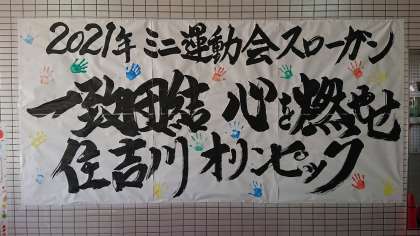 2021年 ミニ運動会スローガン
一致団結 心を燃やせ
住吉川 オリンピック